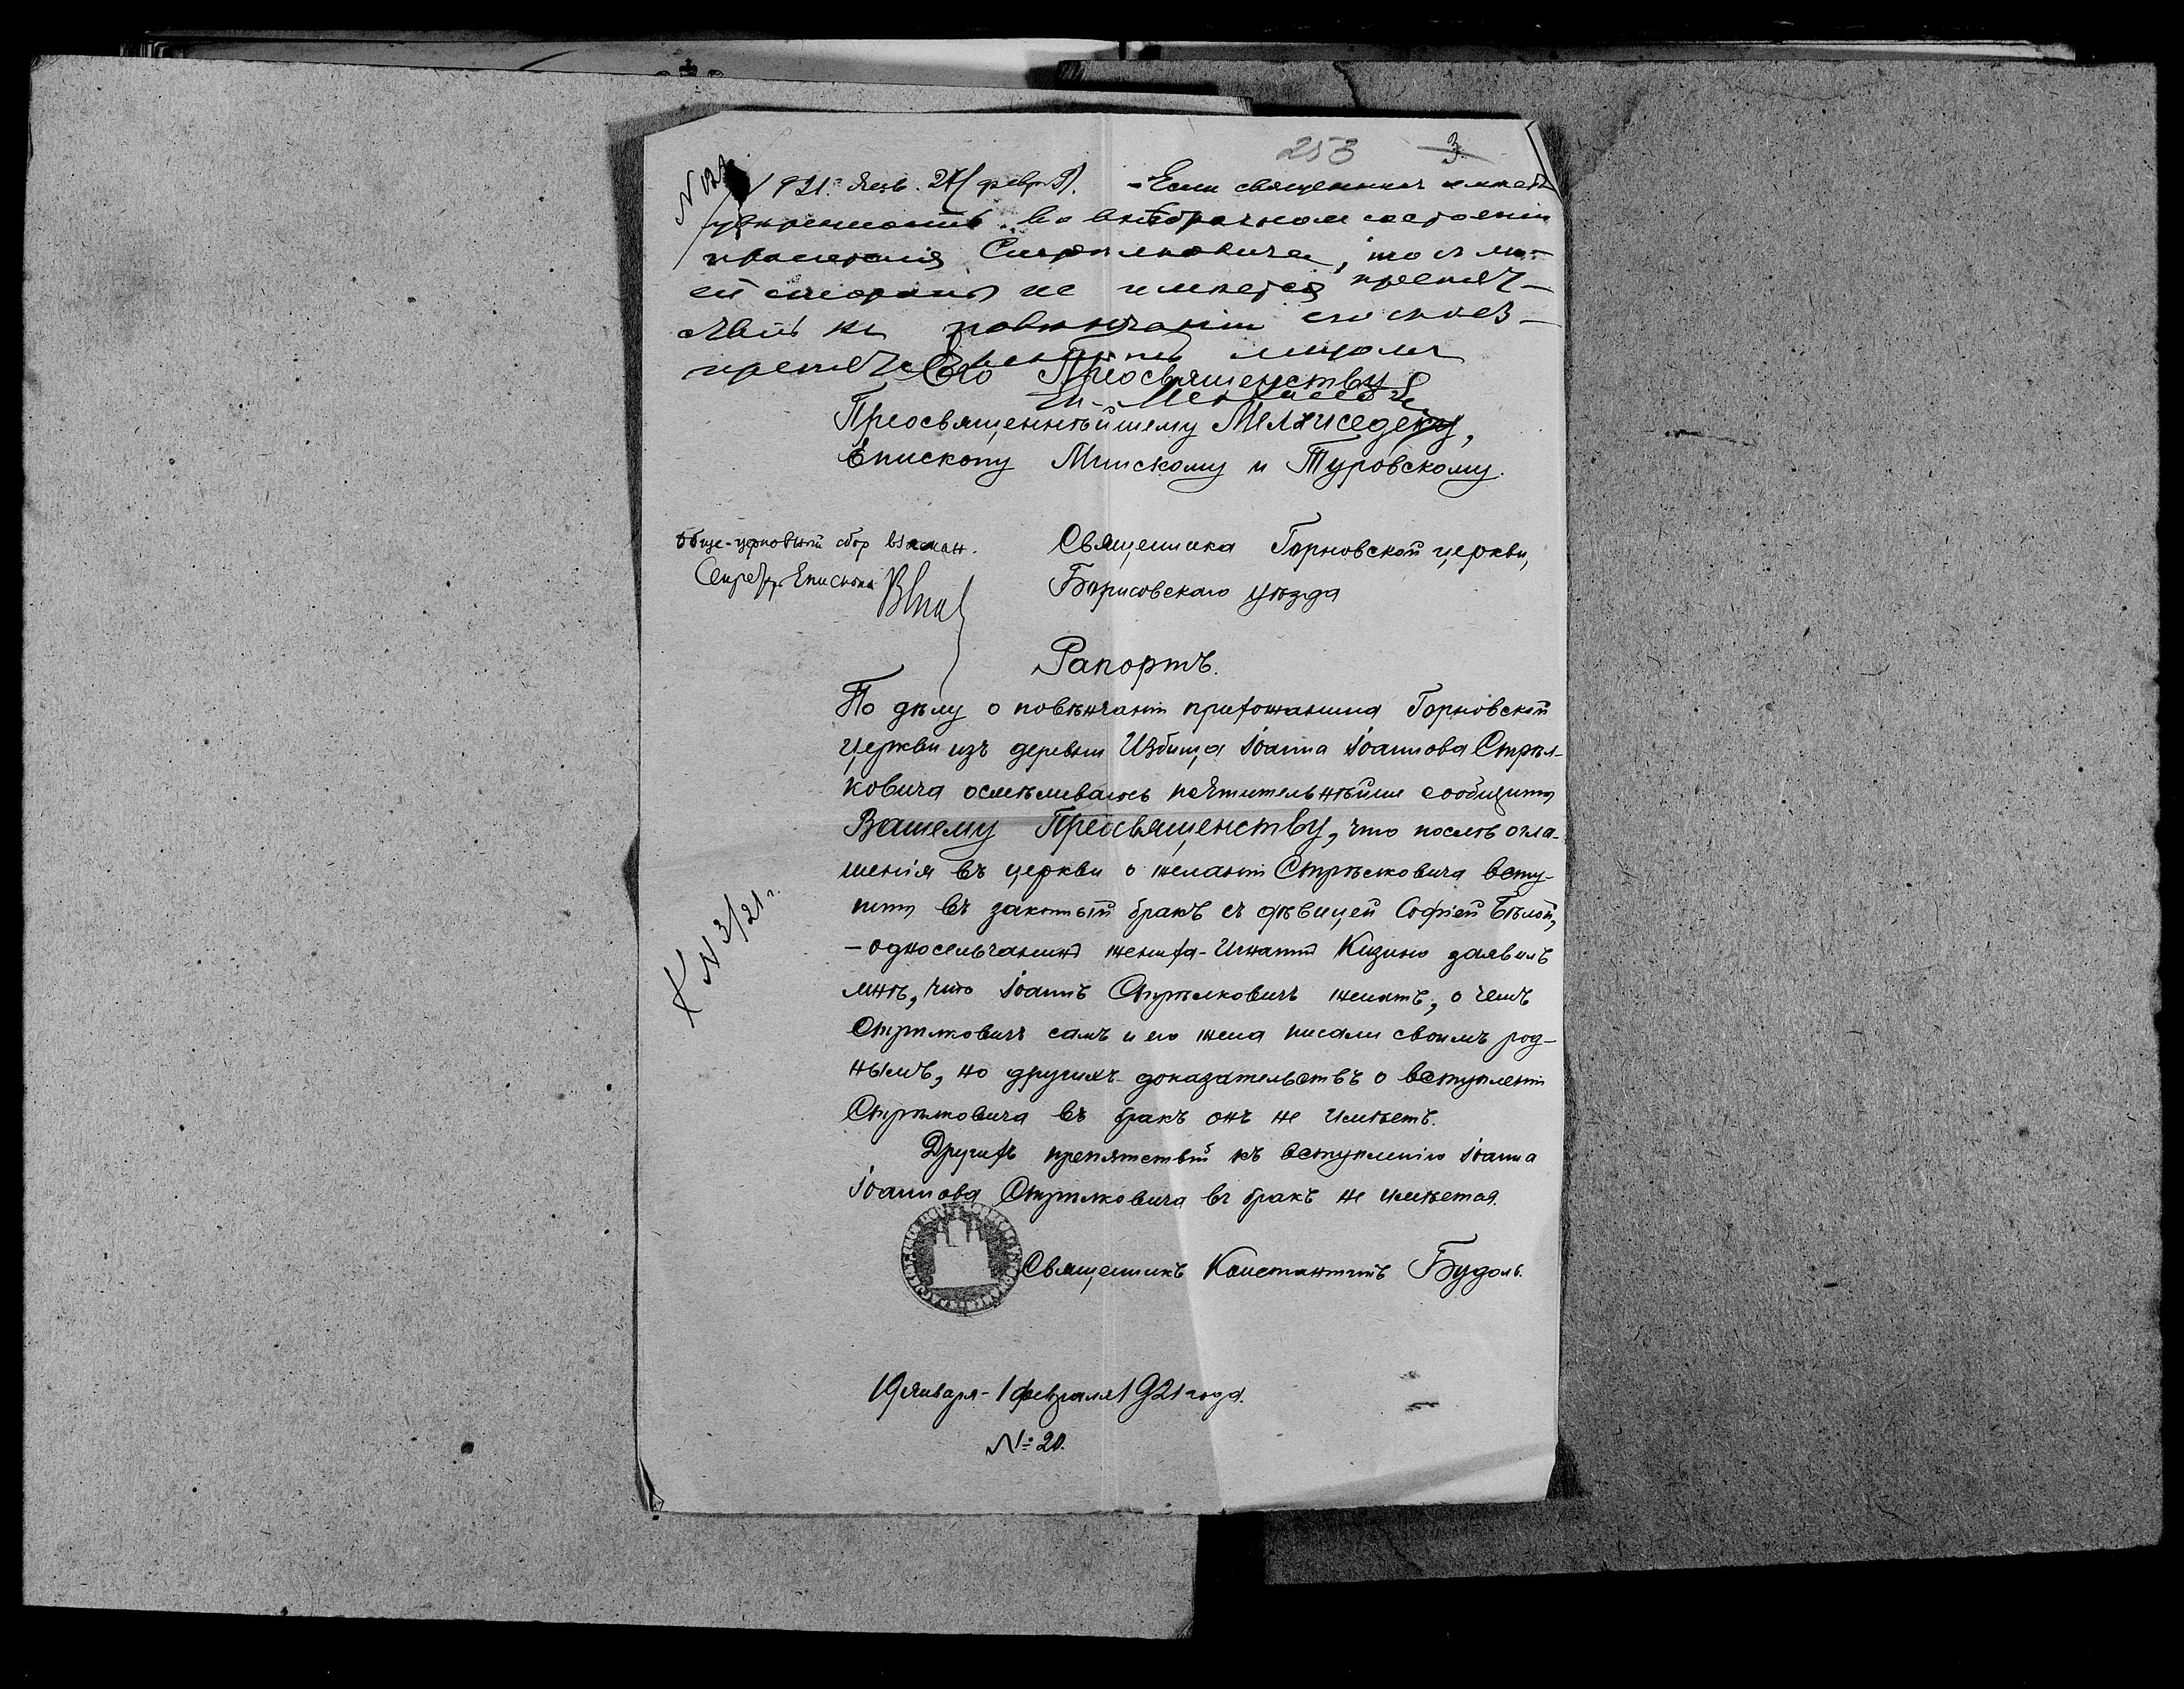 253 3
1921 г. Янв. 27 (февр. 9). Если священникъ имѣетъ
увѣренность въ внѣбрачномъ состояніи
просителя Стрѣлковича, то съ мо-
ей стороны не имѣется препят-
ствій къ повѣнчанію его съ
лицомъ
Его Преосвященству
Еп. Мелхиседекъ
Преосвященнѣйшему Мелхиседеку,
Епископу Минскому и Туровскому.
Обще-церковный сбор взыскан.
Секретарь Епископа
Священника Горновской церкви,
Борисовскаго уѣзда
Рапортъ.
По дѣлу о повѣнчаніи прихожанина Горновской
церкви изъ деревни Избища Іоанна Іоаннова Стрѣл-
ковича осмѣливаюсь почтительнѣйше сообщить
Вашему Преосвященству, что послѣ огла-
шенія въ церкви о желаніи Стрѣлковича всту-
пить въ законный бракъ съ дѣвицей Софіей Бѣлой,
– односельчанинъ жениха - Игнатій Кизино заявилъ
мнѣ, что Іоаннъ Стрѣлковичъ женатъ, о чемъ
Стрѣлковичъ самъ и его жена писали своимъ род-
нымъ, но другихъ доказательствъ о вступленіи
Стрѣлковича въ бракъ онъ не имѣетъ.
Другихъ препятствій къ вступленію Іоанна
Іоаннова Стрѣлковича въ бракъ не имѣется.
Священникъ Константинъ Будоль.
К № 3/21 г.
19 января - 1 февраля 1921 года.
№ 20.